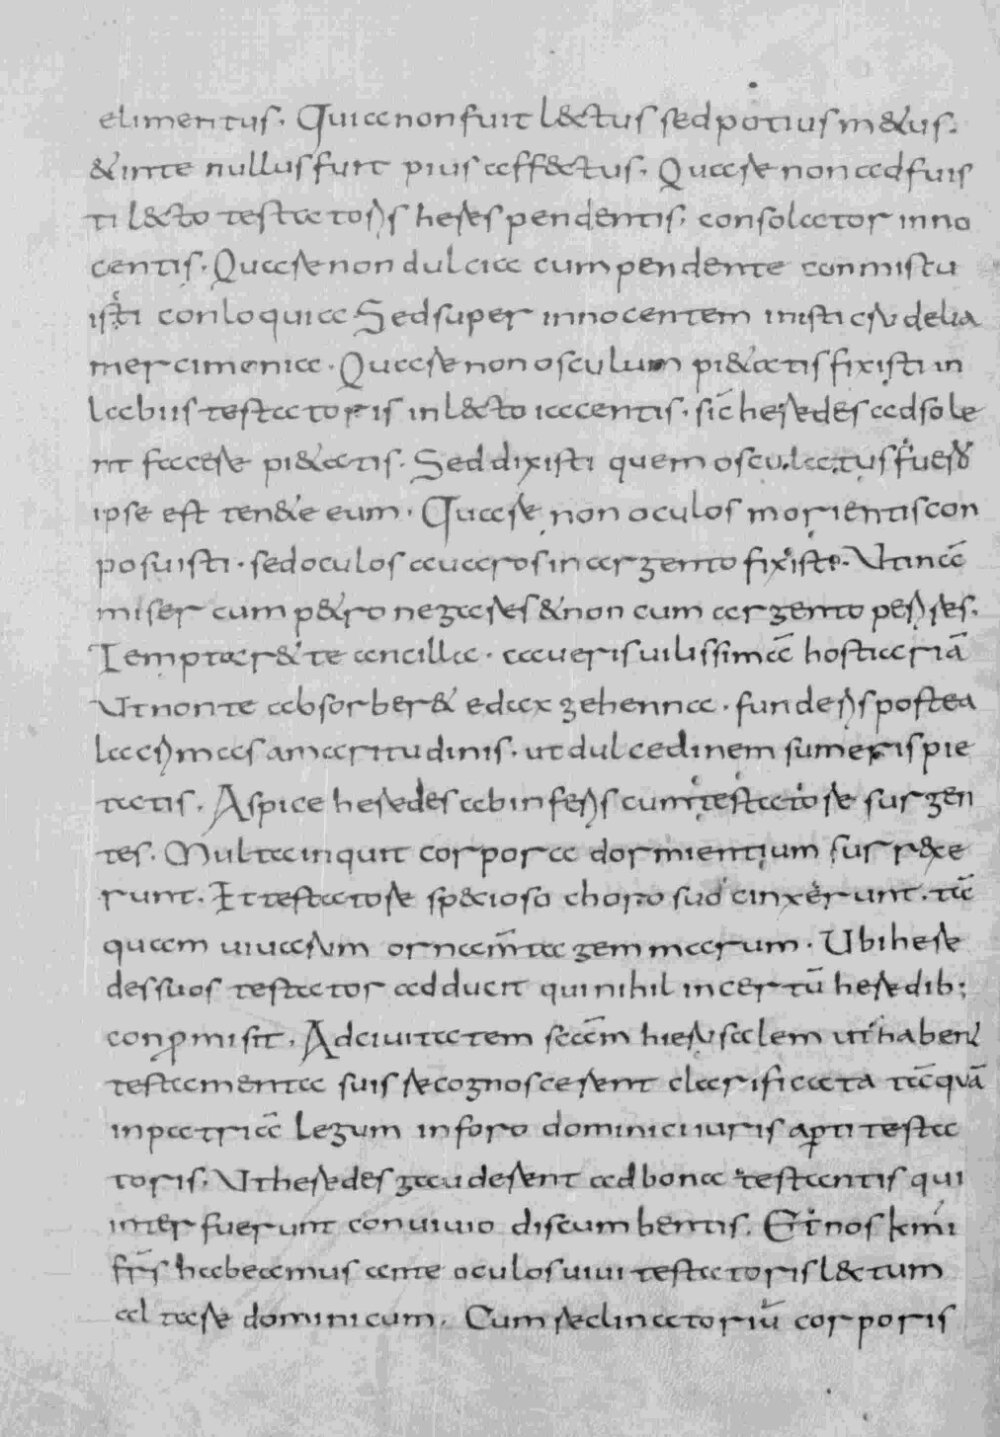 elimentus. Quia non fuit l&ctus sed potius m&us.
& in te nullus fuit pius aff&ctus. Quare non adfuis
ti l&cto testatoris heres pendentis. consolator inno
centis. Quare non dulcia cum pendente conmistu
isti conloquia Sed super innocentem misti crudelia
mercimonia. Quare non osculum pi&atis fixisti in
labiis testatoris in l&cto iacentis. sic heredes ad sole
nt facere pi&atis. Sed dixisti quem osculatus fuero
ipse est ten&e eum. Quare non oculos morientis con
posuisti. sed oculos auaros in argento fixisti. Vtinā
miser cum p&ro negares & non cum argento perires.
Temptar&te ancilla. aueris uilissimā hostiariā
Vt non te absorber& edax gehenna. funderis postea
lacrimas amaritudinis. ut dulcedinem sumeris pie
tatis. Aspice heredes ab inferis cum testatore surgen
tes. Multa inquit corpora dormientium surr&xe
runt. Et testatore sp&cioso choro suo cinxerunt. tā
quam uiuarum ornam̄ta gemmarum. Ubi here
des suos testator adducit qui nihil incertū heredib;
conp̱misit. Ad ciuitatem scām hierusalem ut haben
testamenta suis recognoscerent clarificata tāquā
in patriā legum in foro dominici iuris ap̱ti testa
toris. Vt heredes gauderent ad bona testantis qui
inter fuerunt conuiuio discumbentis. Et nos k̄mi
fr̄s habeamus ante oculos uiui testatoris l&ctum
altare dominicum. Cum reclinatoriū corporis